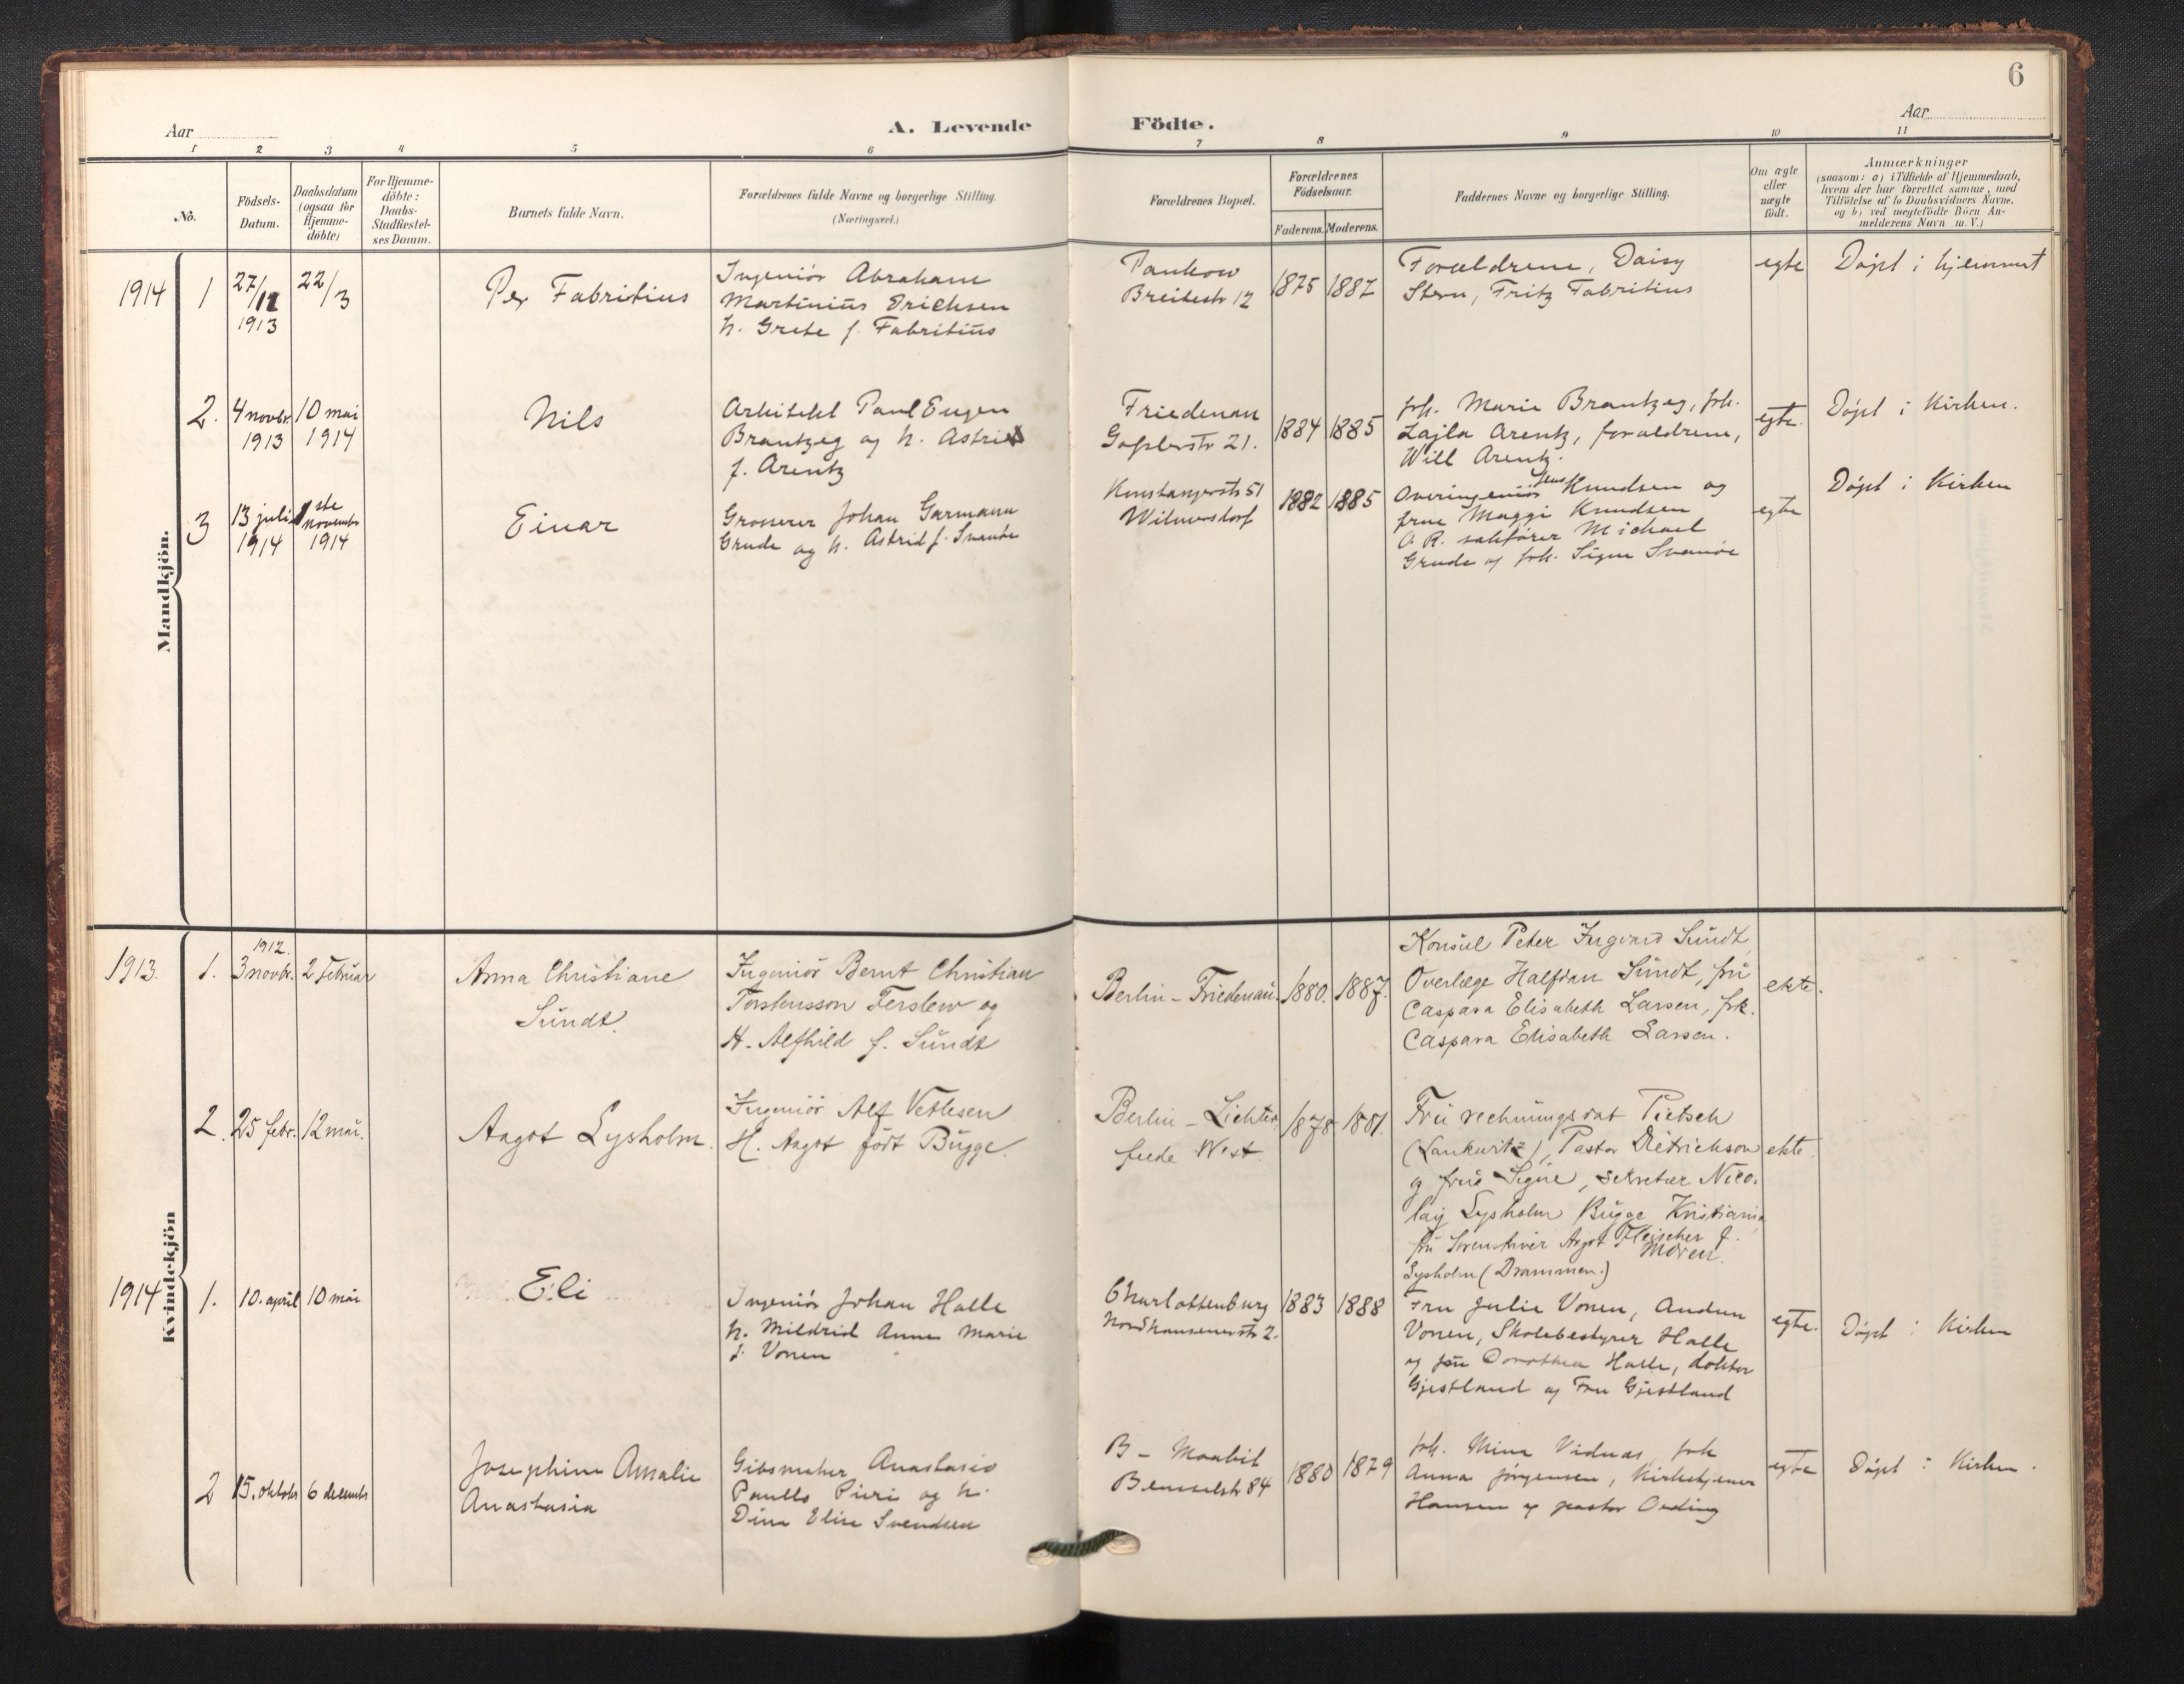 6
Aar
A. Levende
Födte.
Aar
1
2
3
4
5
6
7
8
9
10
11
No.
Födsels-
Datum.
Daabsdatum
(ogsaa for
Hjemme-
döbte)
For Hjemme-
döbte:
Daabs-
Stadfæstel-
ses Datum.
Barnets fulde Navn.
Forældrenes fulde Navne og borgerlige Stilling.
(Næringsvei.)
Forældrenes Bopæl.
Forældrenes
Födselsaar.
Faderens.
Moderens.
Faddernes Navne og borgerlige Stilling.
Om ægte
eller
uægte
födt.
Anmærkninger
(saasom: a) i Tilfælde af Hjemmedaab,
hvem der har forrettet samme, med
Tilföielse af to Daabsvidners Navne,
og b) ved uægtefödte Börn An-
melderens Navn m. V.)
Mandkjön.
1914
1
27/12
1913
22/3
Per Fabritius
Ingeniör Abraham
Martinius Erichsen
h. Grete f. Fabritius
Pankow
Breitestr 12
1875
1887
Forældrene, Daisy
Stern, Fritz Fabritius
egte
Døpt i hjemmet
2.
4 novbr.
1913
10 mai
1914
Nils
Arkitekt Paul Eugen
Brantzeg og h. Astrid
f. Arentz
Friedenau
Goßlerstr 21.
1884
1885
frk. Marie Brantzeg, frk.
Lajla Arentz, forældrene,
Will Arentz.
egte.
Døpt i Kirken.
3
13 juli
1914
1ste
novembr
1914
Einar
Grosserer Johan Garmann
Grude og h. Astrid f. Svanøe
Konstanzerstr 51
Wilmersdorf
1882
1885
Overingeniør Jens Knudsen og
frue Maggi Knudsen
O. R. sakfører Michael
Grude og frk. Signe Svanøe
egte
Døpt i Kirken
Kvindekjön
1913.
1.
1912.
3 novbr.
2 Februar
Anna Christiane
Sundt.
Ingeniör Bernt Christian
Torstensson Ferslew og
H. Alfhild f. Sundt
Berlin - Friedenau.
1880.
1887.
Konsul Peter Ingvard Sundt,
Overlæge Halfdan Sundt, fru
Caspara Elisabeth Larsen, frk.
Caspara Elisabeth Larsen.
ekte.
2.
25 febr.
12 mai.
Aagot Lysholm.
Ingeniör Alf Vetlesen
H. Aagot födt Bugge.
Berlin - Lichter
felde West.
1878
1881.
Fru rechnungsrat Pietsch
(Lankwitz), Pastor Dietrichson
og frue Signe, sekretær Nico-
lay Lysholm Bugge Kristiania,
fru Sorenskriver Aagot Fleischer f.
Lysholm (Drammen.) Moren.
ekte.
1914
1.
10. april
10 mai
Eli
Ingeniör Johan Halle
h. Mildrid Anne Marie
f. Vonen
Charlottenburg
Nordhausenerstr 2.
1883
1888
Fru Julie Vonen, Andun
Vonen, Skolebestyrer Halle
og fru Dorothea Halle, doktor
Gjestland og Fru Gjestland
egte.
Døpt i Kirken
2
15. oktober
6 decembr
Josephine Amalie
Anastasia
Gibsmaker Anastasio
Paullo Pieri og h.
Dina Elise Svendsen
B - Moabit
Beusselstr 84
1880
1879
frk. Mina Vidnæs, frk
Anna Jørgensen, Kirketjener
Hansen og pastor Ording
egte
Døpt i Kirken.